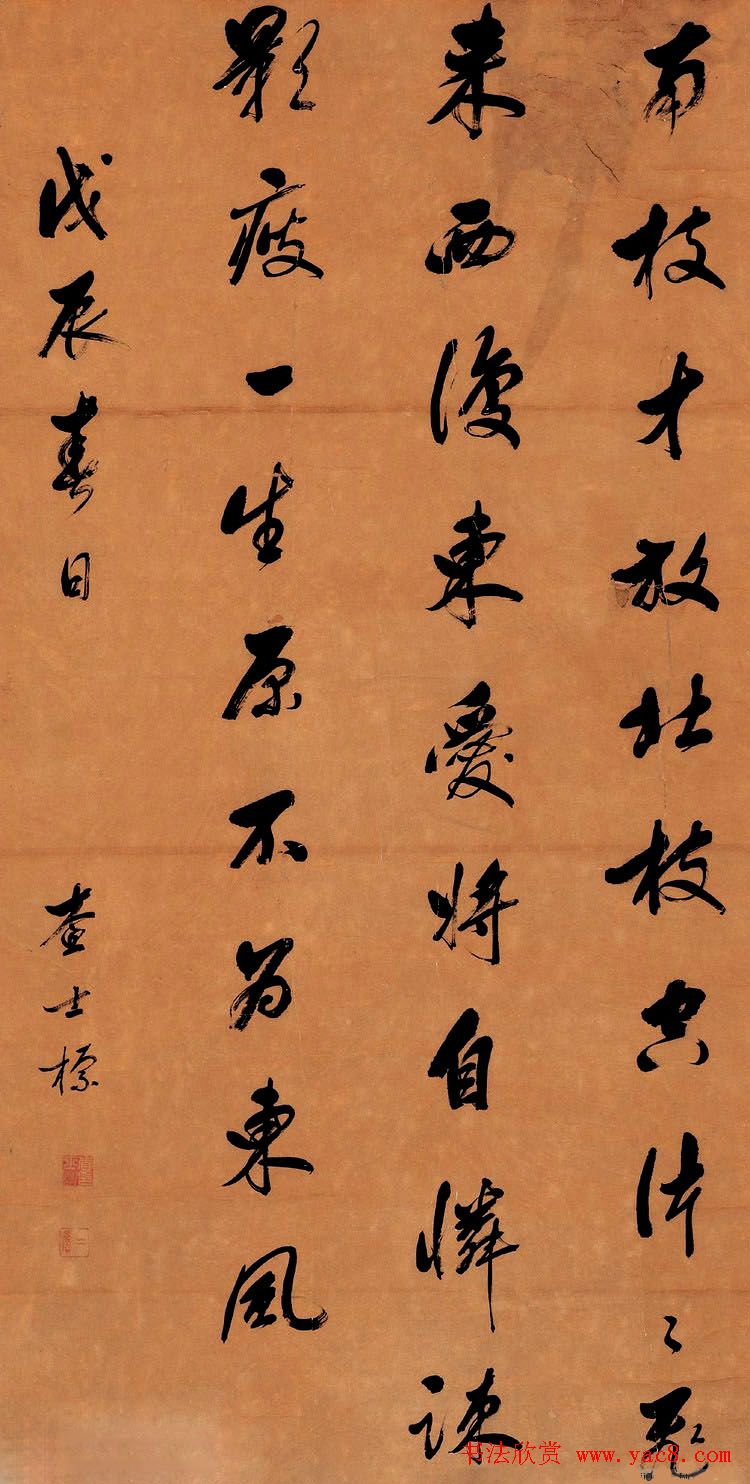 南枝才放北枝空片〻飛
来西復東愛將自憐疎
影瘦一生原不為東風
戊辰春日
查士標
书法欣赏 www.yac8.com